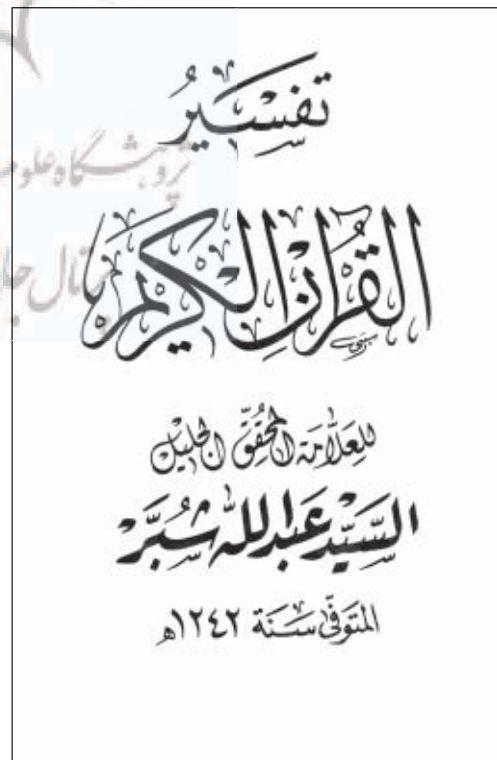 تفسير
القرآن الكريم
للعلامة المحقق الجليل
السيد عبد الله شبر
المتوفى سنة ١٢٤٢ه
پژوهشگاه علوم